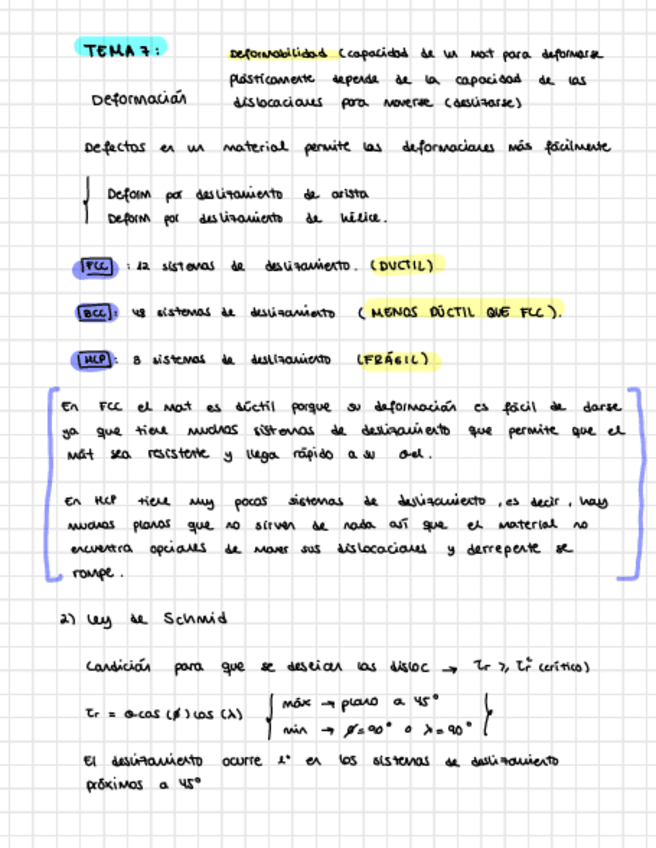 TEMA 7:
Deformabilidad (capacidad de un mat para deformarse
plásticamente depende de la capacidad de las
Deformación
dislocaciones para moverse (deslizarse)
Defectos en un material permite las deformaciones más fácilmente
Deform por deslizamiento de arista
Deform por deslizamiento de hélice.
FCC : 12 sistemas de deslizamiento. (DUCTIL)
BCC : 48 sistemas de deslizamiento (MENOS DÚCTIL QUE FCC).
HCP : 8 sistemas de deslizamiento (FRÁGIL)
En FCC el mat es dúctil porque su deformación es fácil de darse
ya que tiene muchos sistemas de deslizamiento que permite que el
mat sea resistente y llega rápido a su σel.
En HCP tiene muy pocos sistemas de deslizamiento, es decir, hay
muchos planos que no sirven de nada así que el material no
encuentra opciones de mover sus dislocaciones y derrepente se
rompe.
2) Ley de Schmid
Condición para que se deslicen las disloc → τr ≥ τr* (crítico)
τr = σ cos (ϕ) cos (λ)
máx → plano a 45°
min → ϕ=90° o λ=90°
El deslizamiento ocurre 1° en los sistemas de deslizamiento
próximos a 45°